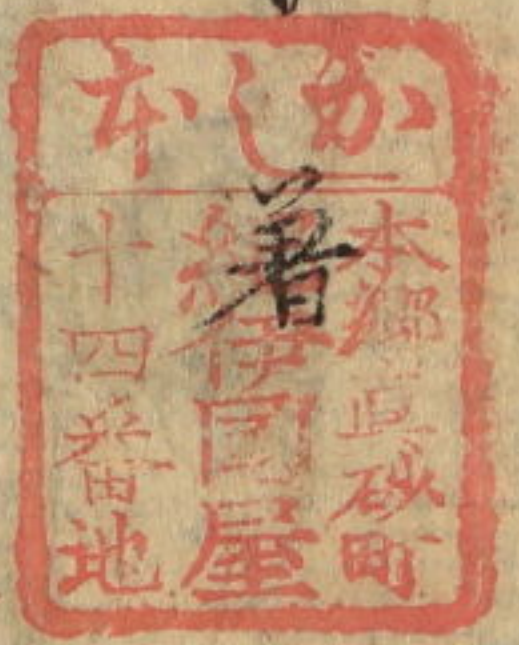 かし本
本郷真砂町
紀伊國屋
十四番地
著